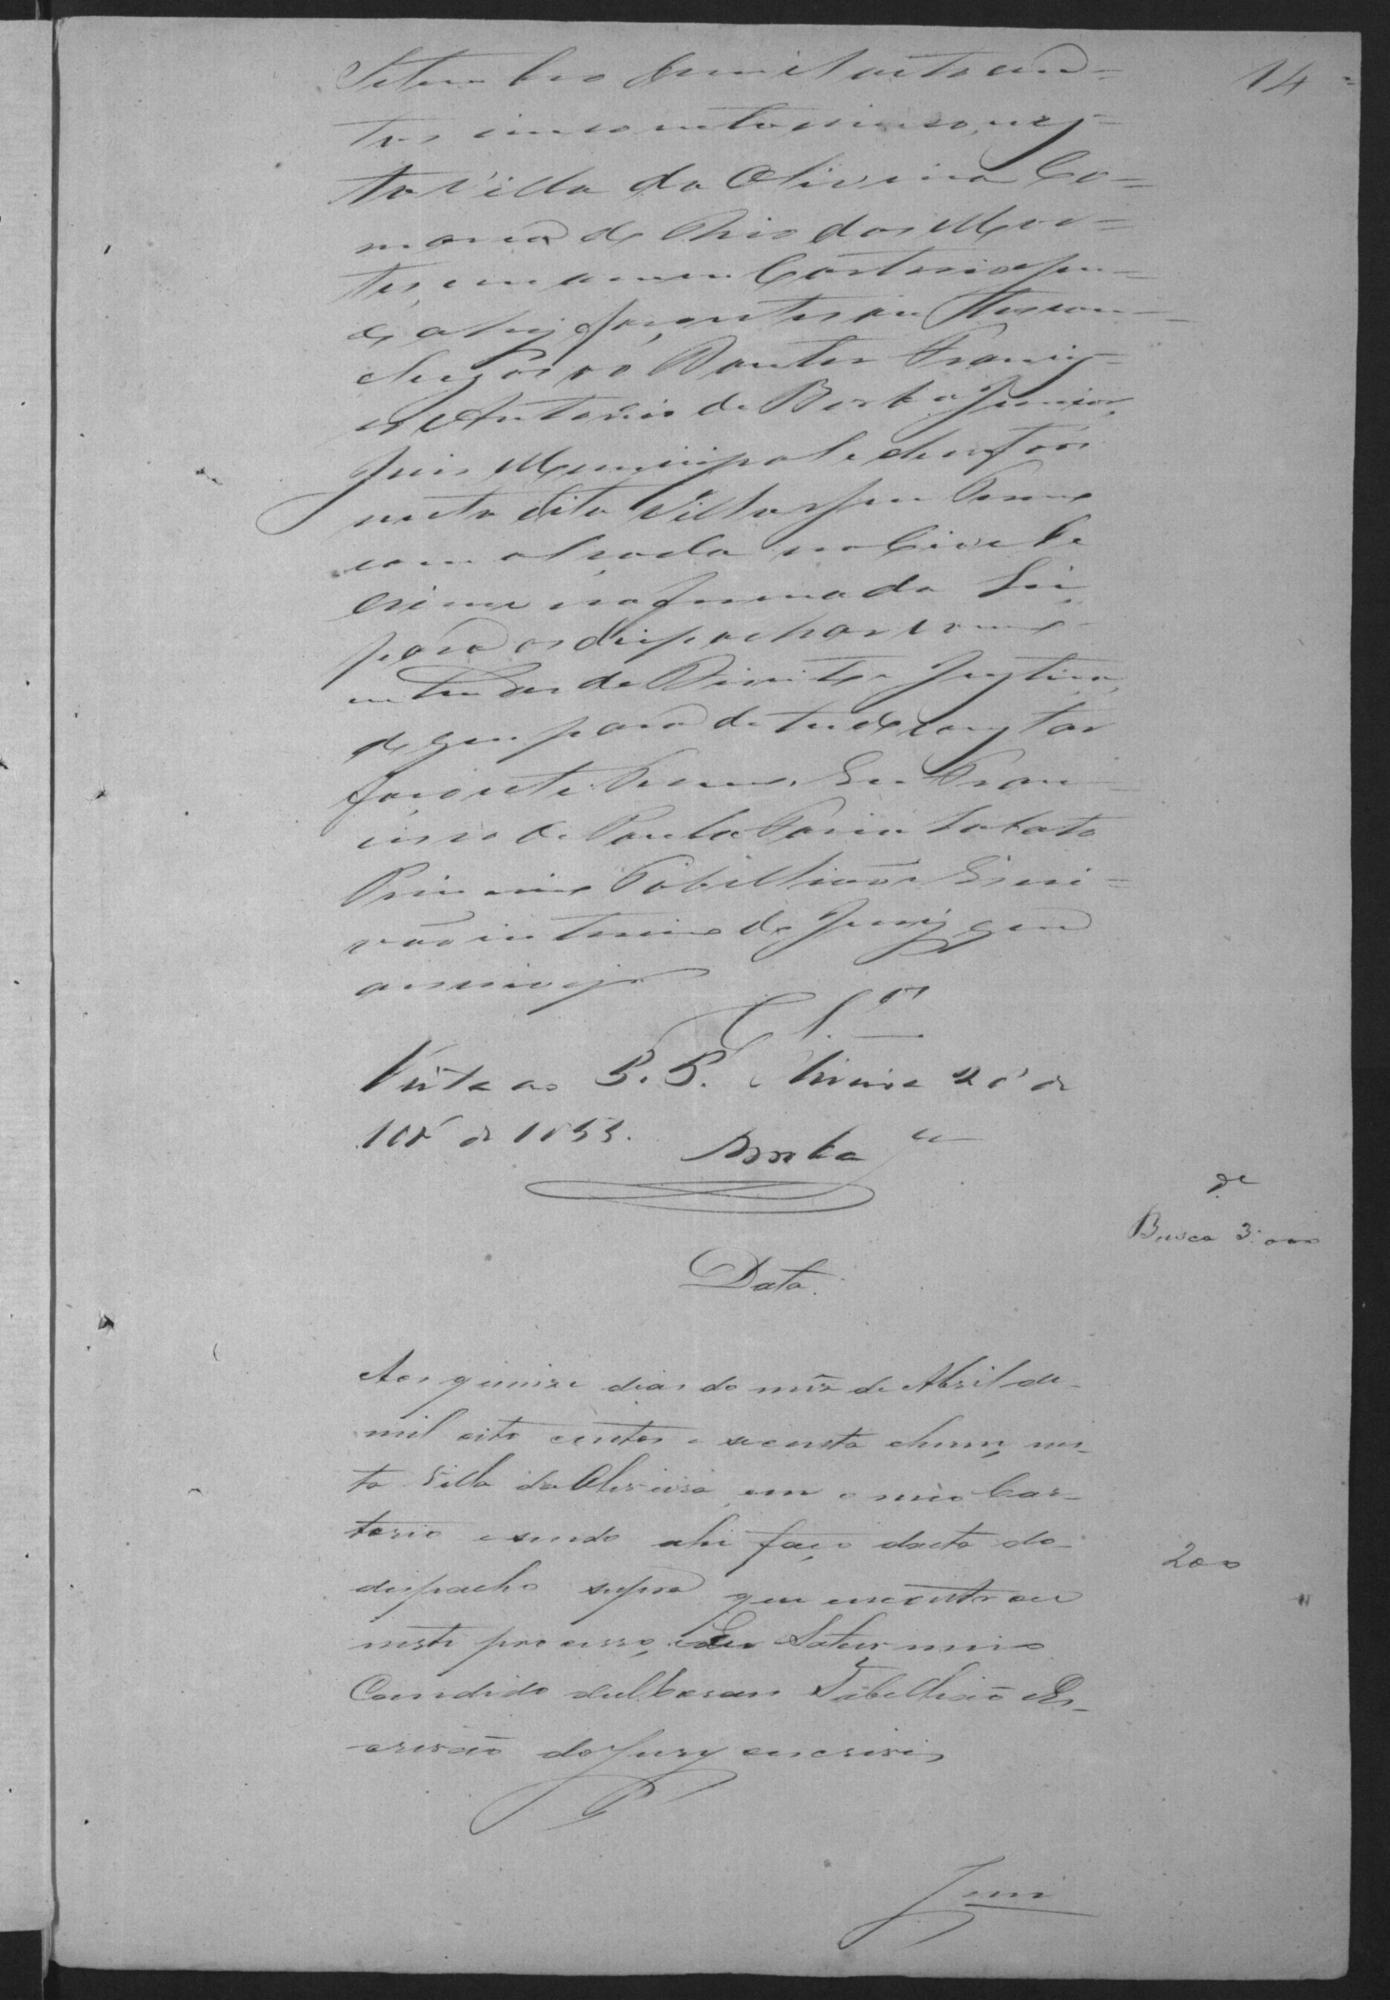 14
Setembro de mil oito cen=
tos cincoenta e cinco, nes=
ta Villa da Oliveira Co=
marca do Rio das Mor=
tes, em o meu Cartorio sen=
do ahi faço estes au
clusos ao Doutor Francis=
co Antonio de Borba Junior,
Juis Municipal e de orfãos
nesta dita Villa e seu Termo
com alçada no Civel e
crime na forma da Lei
para os despachar como
entender de Direito e Justiça,
do que para de tudo constar
faço este Termo. Eu Fran=
cisco de Paula Faria Lobato
Primeiro Tabellião e Escri=
vão interino do Jury que
o escrevy
Cl.os
Vista ao P. P. Oliveira 20 de
10br de 1855.
Borba Jr
de
Busca 3:000
Data.
Aos quinze dias do mês de Abril de
mil oito centos e secenta e hum, nes-
ta Villa da Oliveira em o meu Car-
torio e sendo ahi faço dacta do
despacho supra que encontrei
neste processo, Eu Saturnino
Candido Tabellião Es-
crivão do Jury escrevi
200
Juni